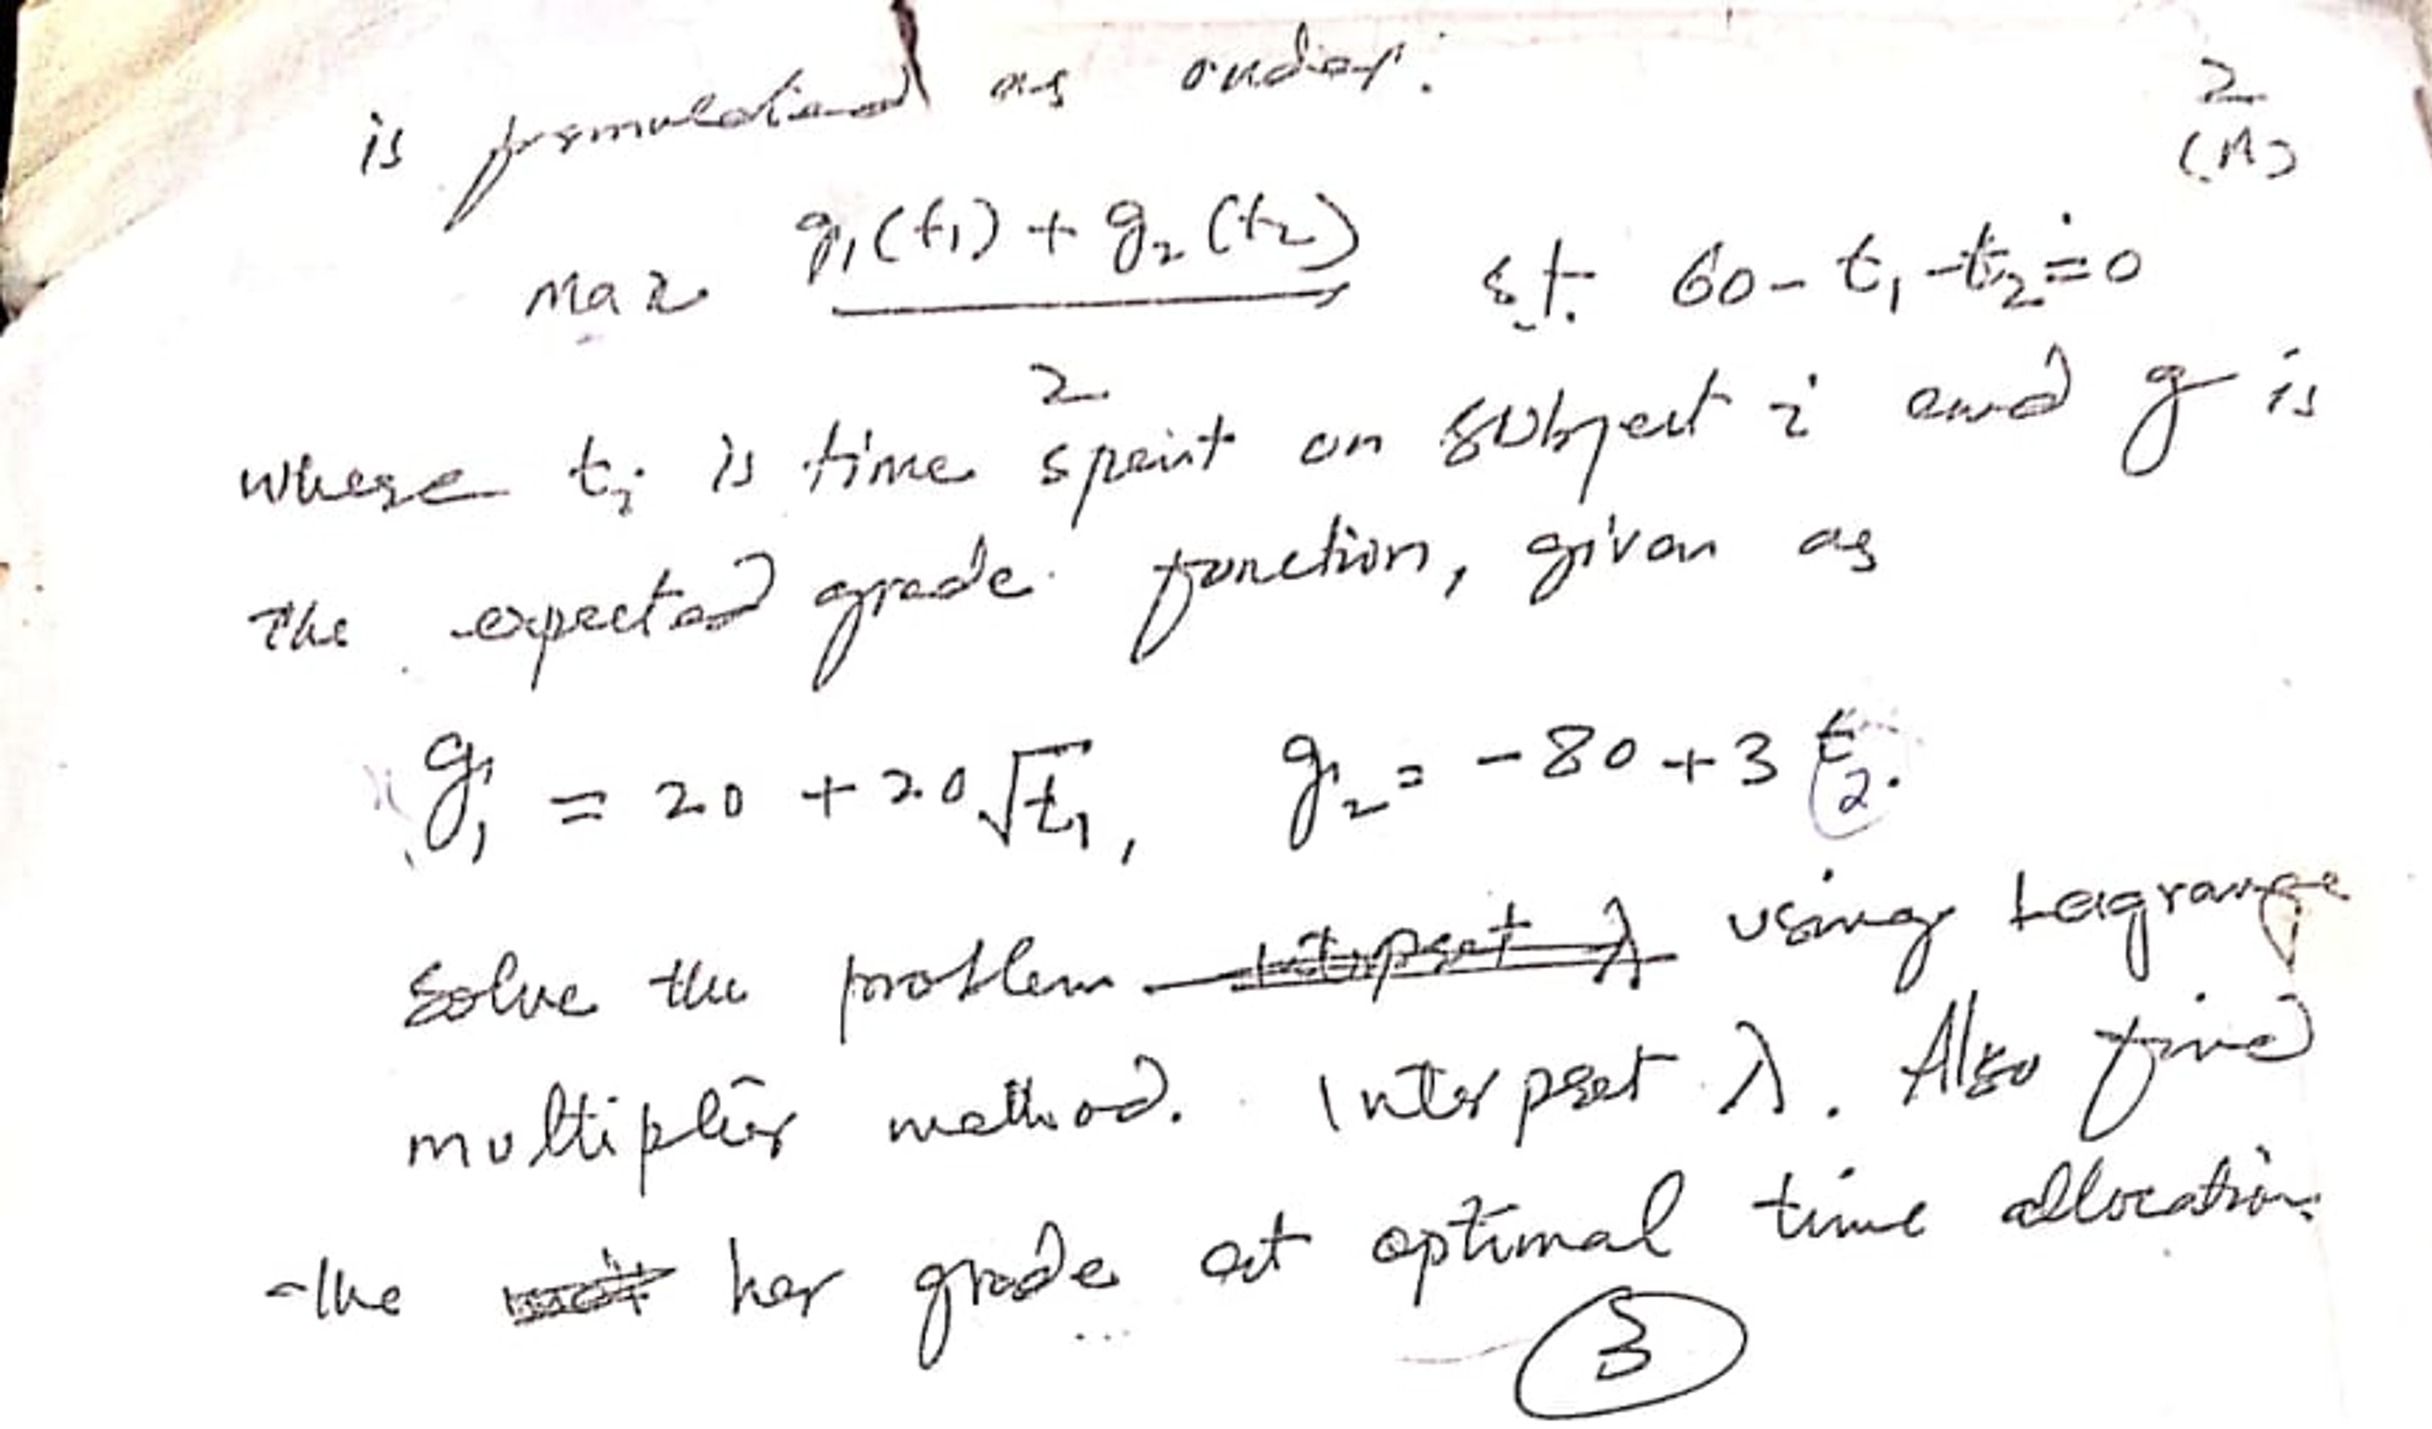 is formulated as under:
2
(A)
Max g₁(t₁) + g₂(t₂) / 2 s.t. 60 - t₁ - t₂ = 0
where tᵢ is time spent on subject i and g is
the expected grade function, given as
g₁ = 20 + 20√t₁, g₂ = -80 + 3t₂.
Solve the problem interpret λ using Lagrange
multiplier method. Interpret λ. Also find
the her grade at optimal time allocation.
3